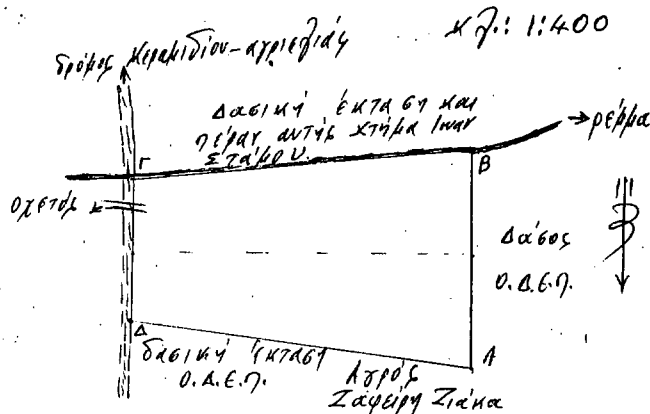 κλ.: 1:400
δρόμος Κεραμιδίου-αγριελιάς
Δασική έκταση και
πέραν αυτής κτήμα Ιωαν
Στάμου.
ρέμμα
Γ
Β
οχετός
Δάσος
Ο.Δ.Ε.Π.
Δ
δασική έκταση
Ο.Δ.Ε.Π.
Αγρός
Ζαφείρη Ζιάκα
Α